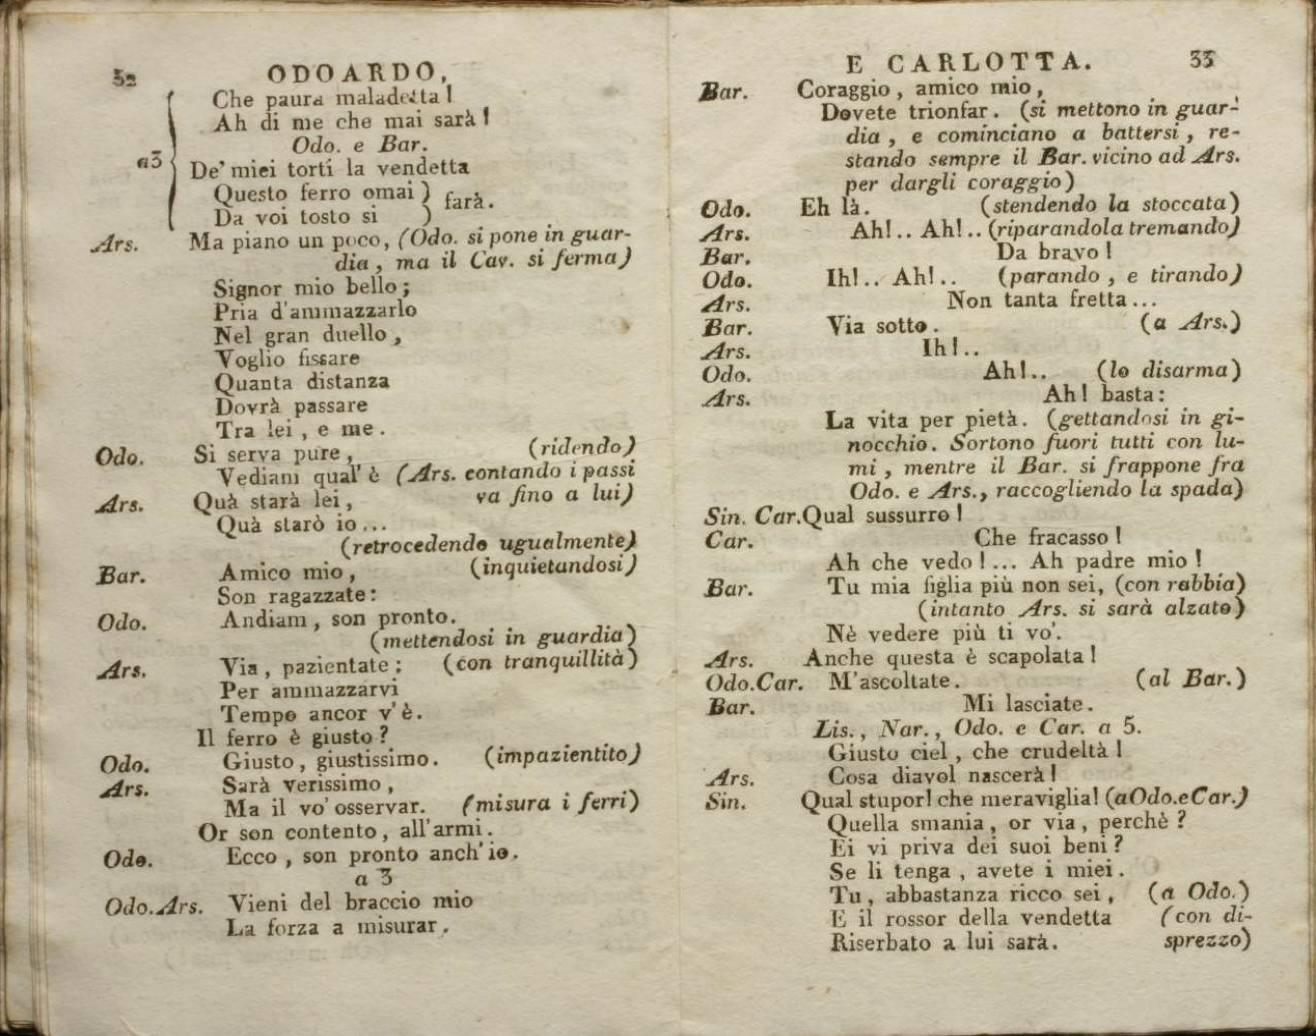 32
ODOARDO,
Che paura maladetta!
Ah di me che mai sarà!
Odo. e Bar.
a3
De' miei torti la vendetta
Questo ferro omai ) farà.
Da voi tosto si )
Ars. Ma piano un poco, (Odo. si pone in guar-
dia, ma il Cav. si ferma)
Signor mio bello;
Pria d'ammazzarlo
Nel gran duello,
Voglio fissare
Quanta distanza
Dovrà passare
Tra lei, e me.
Odo. Si serva pure, (ridendo)
Vediam qual' è (Ars. contando i passi
Ars. Quà starà lei, va fino a lui)
Quà starò io...
(retrocedendo ugualmente)
Bar. Amico mio, (inquietandosi)
Son ragazzate:
Odo. Andiam, son pronto.
(mettendosi in guardia)
Ars. Via, pazientate: (con tranquillità)
Per ammazzarvi
Tempo ancor v'è.
Il ferro è giusto?
Odo. Giusto, giustissimo. (impazientito)
Ars. Sarà verissimo,
Ma il vo' osservar. (misura i ferri)
Or son contento, all'armi.
Odo. Ecco, son pronto anch'io.
a 3
Odo.Ars. Vieni del braccio mio
La forza a misurar.
E CARLOTTA.
33
Bar. Coraggio, amico mio,
Dovete trionfar. (si mettono in guar-
dia, e cominciano a battersi, re-
stando sempre il Bar. vicino ad Ars.
per dargli coraggio)
Odo. Eh là. (stendendo la stoccata)
Ars. Ah!.. Ah!.. (riparandola tremando)
Bar. Da bravo!
Odo. Ih!.. Ah!.. (parando, e tirando)
Ars. Non tanta fretta...
Bar. Via sotto. (a Ars.)
Ars. Ih!..
Odo. Ah!.. (lo disarma)
Ars. Ah! basta:
La vita per pietà. (gettandosi in gi-
nocchio. Sortono fuori tutti con lu-
mi, mentre il Bar. si frappone fra
Odo. e Ars., raccogliendo la spada)
Sin. Car. Qual sussurro!
Car. Che fracasso!
Ah che vedo!... Ah padre mio!
Bar. Tu mia figlia più non sei, (con rabbia)
(intanto Ars. si sarà alzato)
Nè vedere più ti vo'.
Ars. Anche questa è scapolata!
Odo.Car. M'ascoltate. (al Bar.)
Bar. Mi lasciate.
Lis., Nar., Odo. e Car. a 5.
Giusto ciel, che crudeltà!
Ars. Cosa diavol nascerà!
Sin. Qual stupor! che meraviglia! (aOdo.eCar.)
Quella smania, or via, perchè?
Ei vi priva dei suoi beni?
Se li tenga, avete i miei.
Tu, abbastanza ricco sei, (a Odo.)
E il rossor della vendetta (con di-
Riserbato a lui sarà. sprezzo)